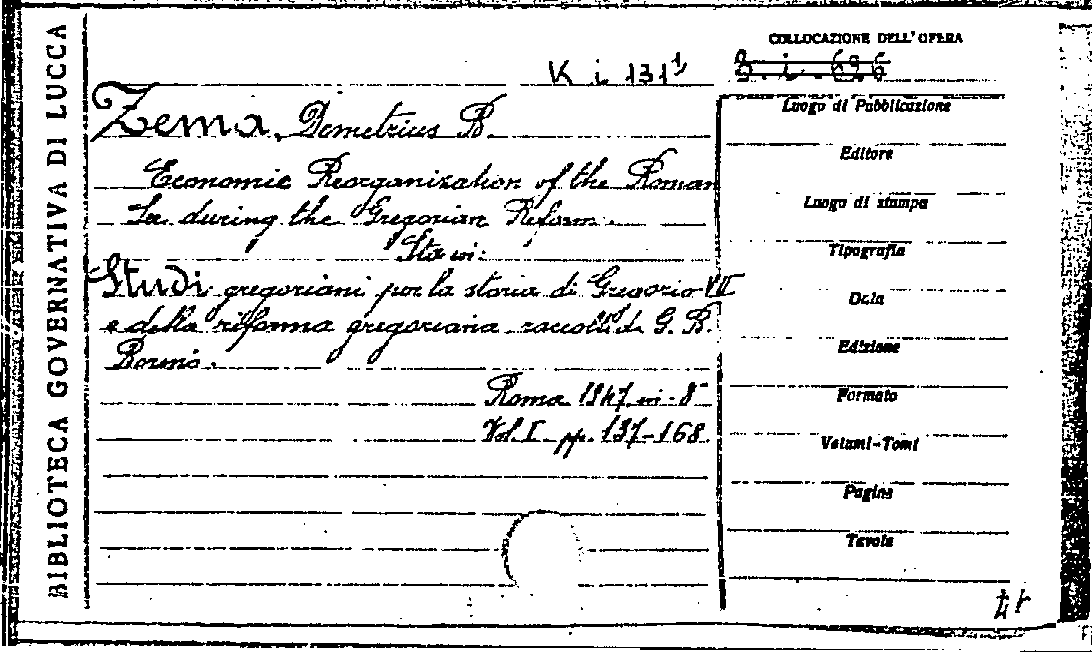 BIBLIOTECA GOVERNATIVA DI LUCCA
COLLOCAZIONE DELL'OPERA
K i 131¹
3. i. 636
Zema, Demetrius B.
Economic Reorganization of the Roman
See during the Gregorian Reform.
Sta in:
Studi gregoriani per la storia di Gregorio VII
e della riforma gregoriana raccolti da G. B.
Borino.
Roma 1947 in-8°
Vol. I pp. 137-168.
Luogo di Pubblicazione
Editore
Luogo di stampa
Tipografia
Data
Edizione
Formato
Volumi-Tomi
Pagine
Tavole